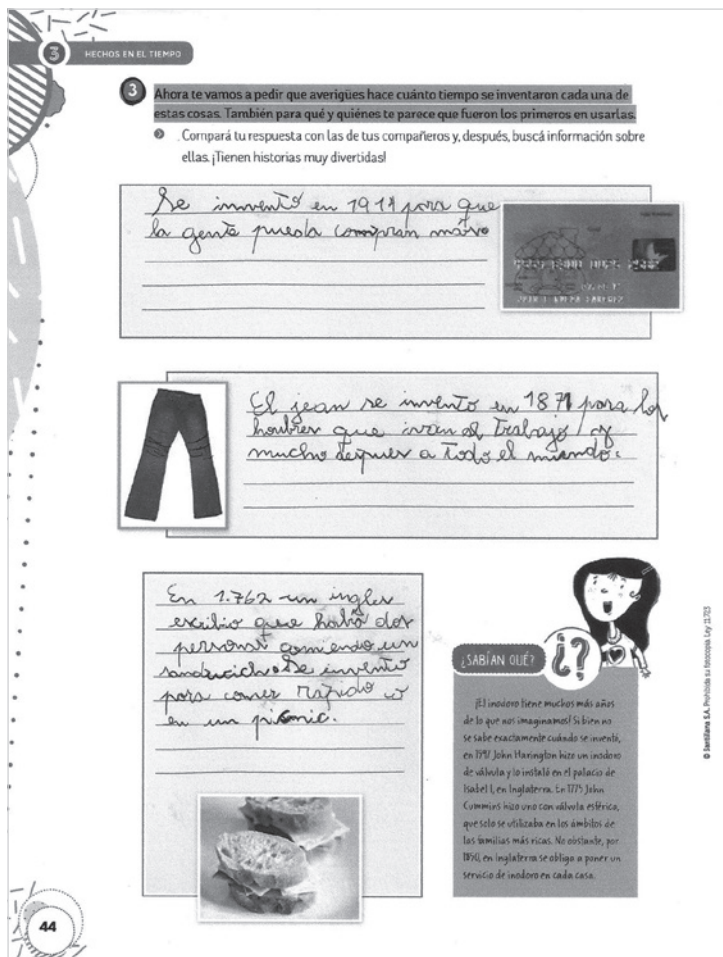 3 HECHOS EN EL TIEMPO
3 Ahora te vamos a pedir que averigües hace cuánto tiempo se inventaron cada una de
estas cosas. También para qué y quiénes te parece que fueron los primeros en usarlas.
Compará tu respuesta con las de tus compañeros y, después, buscá información sobre
ellas. ¡Tienen historias muy divertidas!
Se inventó en 1914 para que
la gente pueda compran
El jean se invento en 1871 para los
hombres que ivan al Trabajo y
mucho despues a Todo el mundo.
En 1.762 un ingles
escribio que habó dos
personas comiendo un
sanducich. Se invento
para comer rapido o
en un picnic.
¿SABÍAN QUÉ?
¿?
¡El inodoro tiene muchos más años
de lo que nos imaginamos! Si bien no
se sabe exactamente cuándo se inventó,
en 1597 John Harington hizo un inodoro
de válvula y lo instaló en el palacio de
Isabel I, en Inglaterra. En 1775 John
Cummins hizo uno con válvula esférica,
que solo se utilizaba en los ámbitos de
las familias más ricas. No obstante, por
1850, en Inglaterra se obliga a poner un
servicio de inodoro en cada casa.
© Santillana S.A. Prohibida su fotocopia. Ley 11.723
44